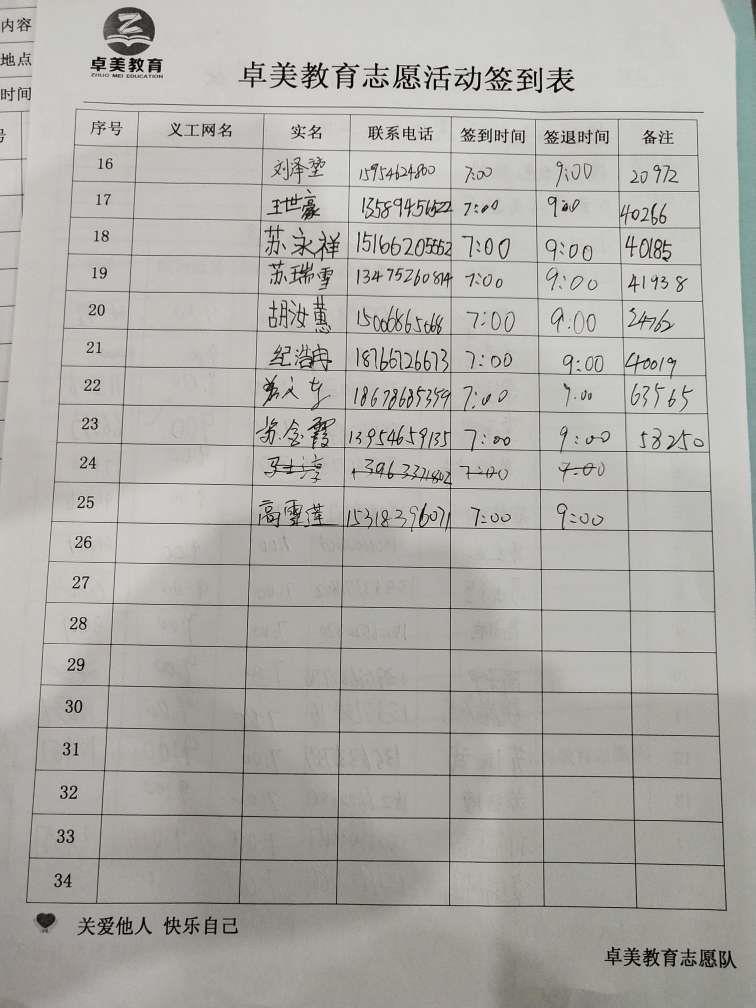 内容
地点
时间
号
卓美教育
ZHUO MEI EDUCATION
卓美教育志愿活动签到表
序号 义工网名 实名 联系电话 签到时间 签退时间 备注
16 刘泽堃 15954624800 7:00 9:00 20972
17 王世豪 7:00 9:00 40266
18 苏永祥 15166205552 7:00 9:00 40185
19 苏瑞雪 13475260814 7:00 9:00 41938
20 胡汝蕙 15006865068 7:00 9:00 24762
21 纪浩冉 18766726673 7:00 9:00 40019
22 18678685359 7:00 9:00 63565
23 苏金霞 13954659135 7:00 9:00 58250
24 7:00 9:00
25 高雪莲 15318396071 7:00 9:00
26
27
28
29
30
31
32
33
34
关爱他人 快乐自己
卓美教育志愿队